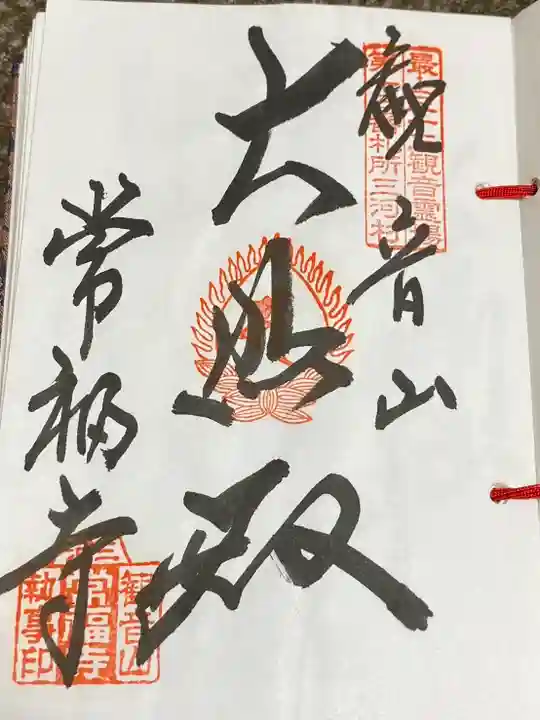 最上三十三観音霊場
札所三河村
観音山
大悲殿
常福寺
観音山
常福寺
執事印